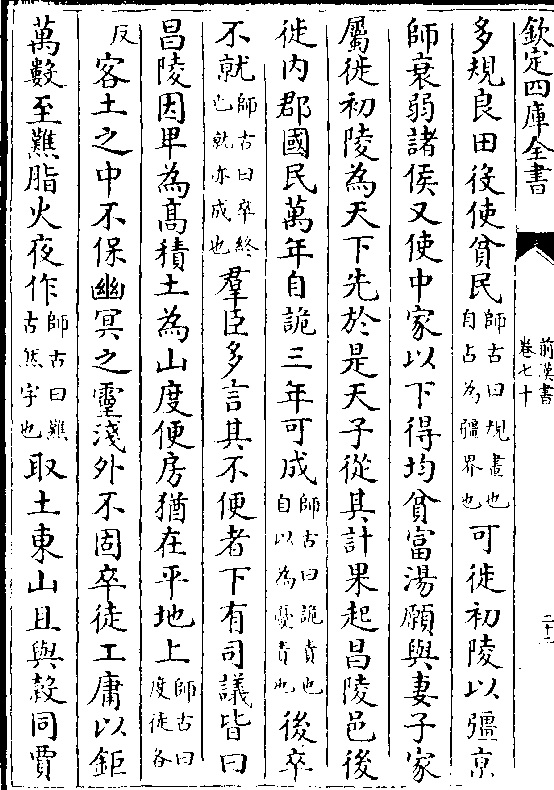 欽定四庫全書
前漢書
卷七十
二十二
多規良田役使貧民師古曰規畫也自占為疆界也可徙初陵以彊京
師衰弱諸侯又使中家以下得均貧富湯願與妻子家
屬徙初陵為天下先於是天子從其計果起昌陵邑後
徙内郡國民萬年自詭三年可成師古曰詭責也自以為憂責也後卒
不就師古曰卒終也就亦成也羣臣多言其不便者下有司議皆曰
昌陵因卑為髙積土為山度便房猶在平地上師古曰度徒各
反客土之中不保幽冥之靈淺外不固卒徒工庸以鉅
萬數至難脂火夜作師古曰難古然字也取土東山且與穀同賈